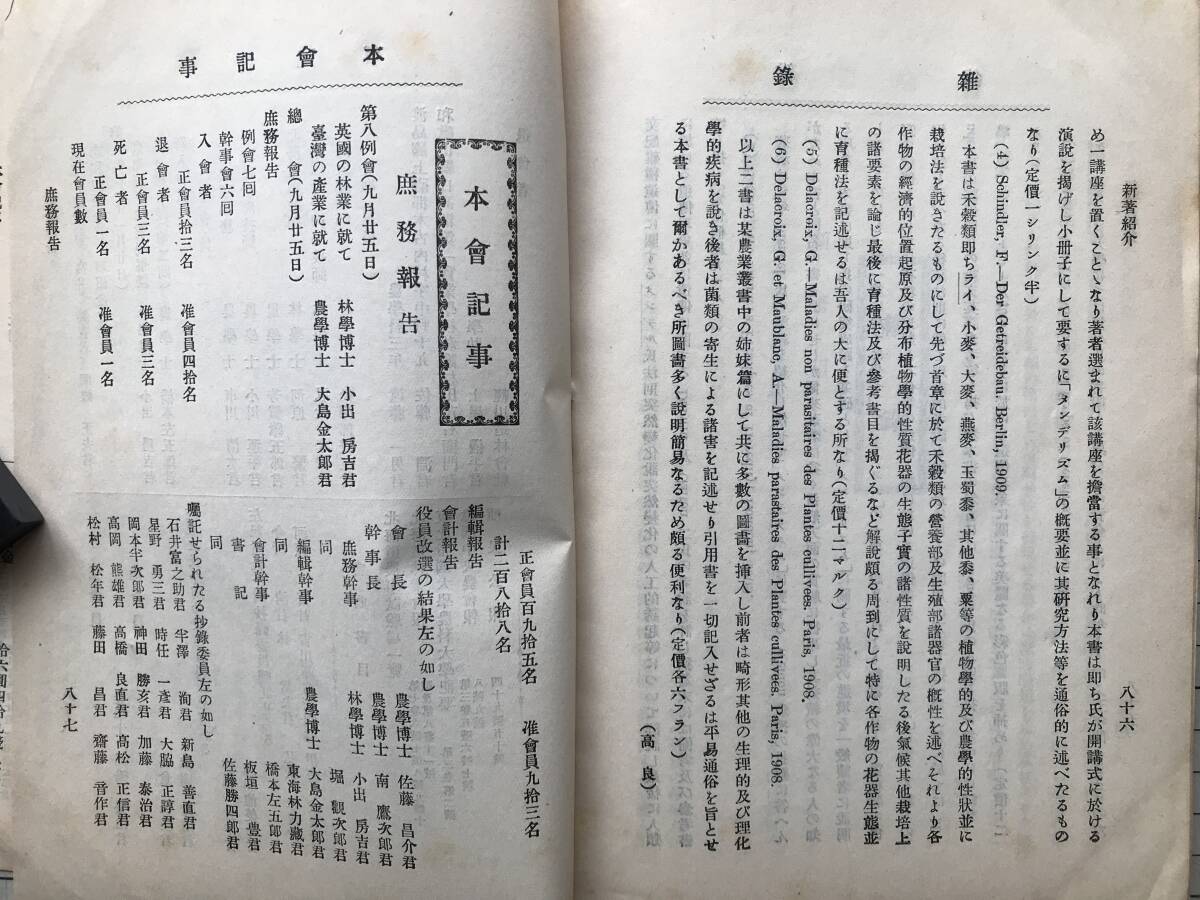 雜錄
新著紹介
八十六
め一講座を置くことゝなり著者選まれて該講座を擔當する事となれり本書は即ち氏が開講式に於ける
演說を揭げし小册子にして要するに「メンデリズム」の槪要並に其硏究方法等を通俗的に述べたるもの
なり(定價一シリンク半)
(4) Schindler, F.—Der Getreidebau. Berlin, 1909.
本書は禾穀類即ちライ、小麥、大麥、燕麥、玉蜀黍、其他黍、粟等の植物學的及び農學的性狀並に
栽培法を說きたるものにして先づ首章に於て禾穀類の營養部及生殖部諸器官の槪性を述べそれより各
作物の經濟的位置起原及び分布植物學的性質花器の生態子實の諸性質を說明したる後氣候其他栽培上
の諸要素を論じ最後に育種法及び參考書目を揭ぐるなど解說頗る周到にして特に各作物の花器生態並
に育種法を記述せるは吾人の大に便とする所なり(定價十二マルク)
(5) Delacroix, G.—Maladies non parasitaires des Plantes cullivees. Paris, 1908.
(6) Delacroix, G. et Maublanc, A.—Maladies parastaires des Plantes cullivées. Paris, 1908.
以上二書は某農業叢書中の姉妹篇にして共に多數の圖畵を挿入し前者は畸形其他の生理的及び理化
學的疾病を說き後者は菌類の寄生による諸害を記述せり引用書を一切記入せざるは平易通俗を旨とせ
る本書として爾かあるべき所圖畵多く說明簡易なるため頗る便利なり(定價各六フラン)
(高良)
本會記事
本會記事
庶務報告
第八例會(九月廿五日)
英國の林業に就て 林學博士 小出 房吉君
臺灣の產業に就て 農學博士 大島金太郎君
總會(九月廿五日)
庶務報告
例會七回
幹事會六回
入會者
正會員拾三名 准會員四拾名
退會者
正會員三名 准會員三名
死亡者
正會員一名 准會員一名
現在會員數
正會員百九拾五名 准會員九拾三名
計二百八拾八名
編輯報告
會計報告
役員改選の結果左の如し
會長 農學博士 佐藤 昌介君
幹事長 農學博士 南 鷹次郎君
庶務幹事 林學博士 小出 房吉君
同 堀 觀次郎君
編輯幹事 農學博士 大島金太郎君
同 東海林力藏君
會計幹事 橋本左五郎君
書記 板垣 豊君
同 佐藤勝四郎君
囑託せられたる抄錄委員左の如し
石井富之助君 半澤 洵君 新島 善直君
星野 勇三君 時任 一彥君 大脇 正諄君
岡本半次郎君 神田 勝亥君 加藤 泰治君
高岡 熊雄君 高橋 良直君 高松 正信君
松村 松年君 藤田 昌君 齋藤 音作君
庶務報告
八十七